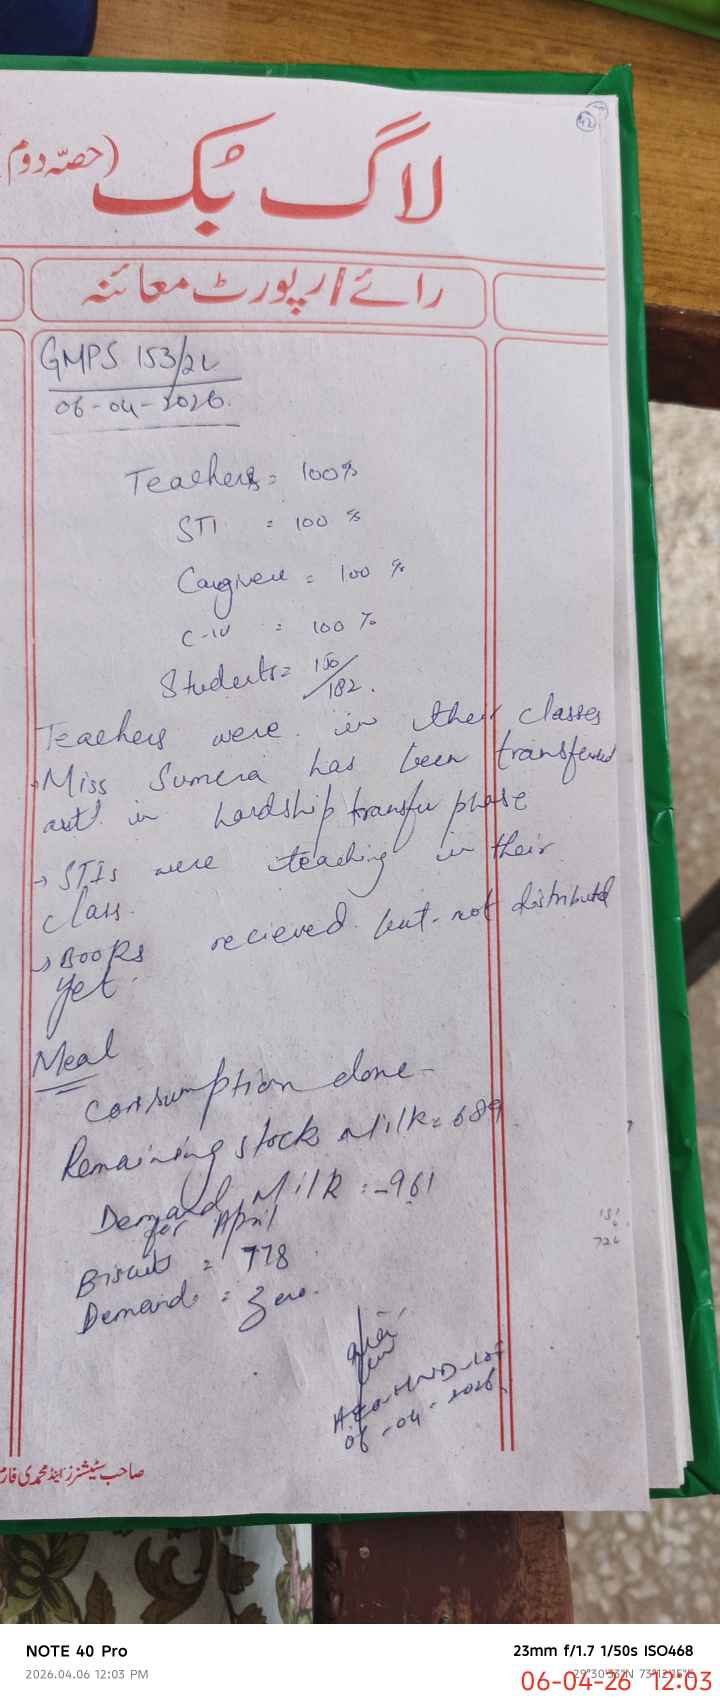 لاگ بک (حصّہ دوم
رائے / رپورٹ معائنہ
GMPS 153/2L
06-04-2026.
Teachers = 100%
STI = 100 %
= 100 %
C-IV = 100 %
Students = 150/182.
Teachers were in their classes
Miss Sumera has been transferred
in hardship transfer phase
→ STIs were teaching in their
class.
→ Books recieved but not distributed
yet.
Meal
Consumption done-
Remaining stock Milk = 689
Demand Milk :- 961
for April
Biscuits = 778
Demand : Zero.
06-04-2026
صاحب سٹیشنرز اینڈ محمدی فار
NOTE 40 Pro
2026.04.06 12:03 PM
23mm f/1.7 1/50s ISO468
06-04-26 12:03